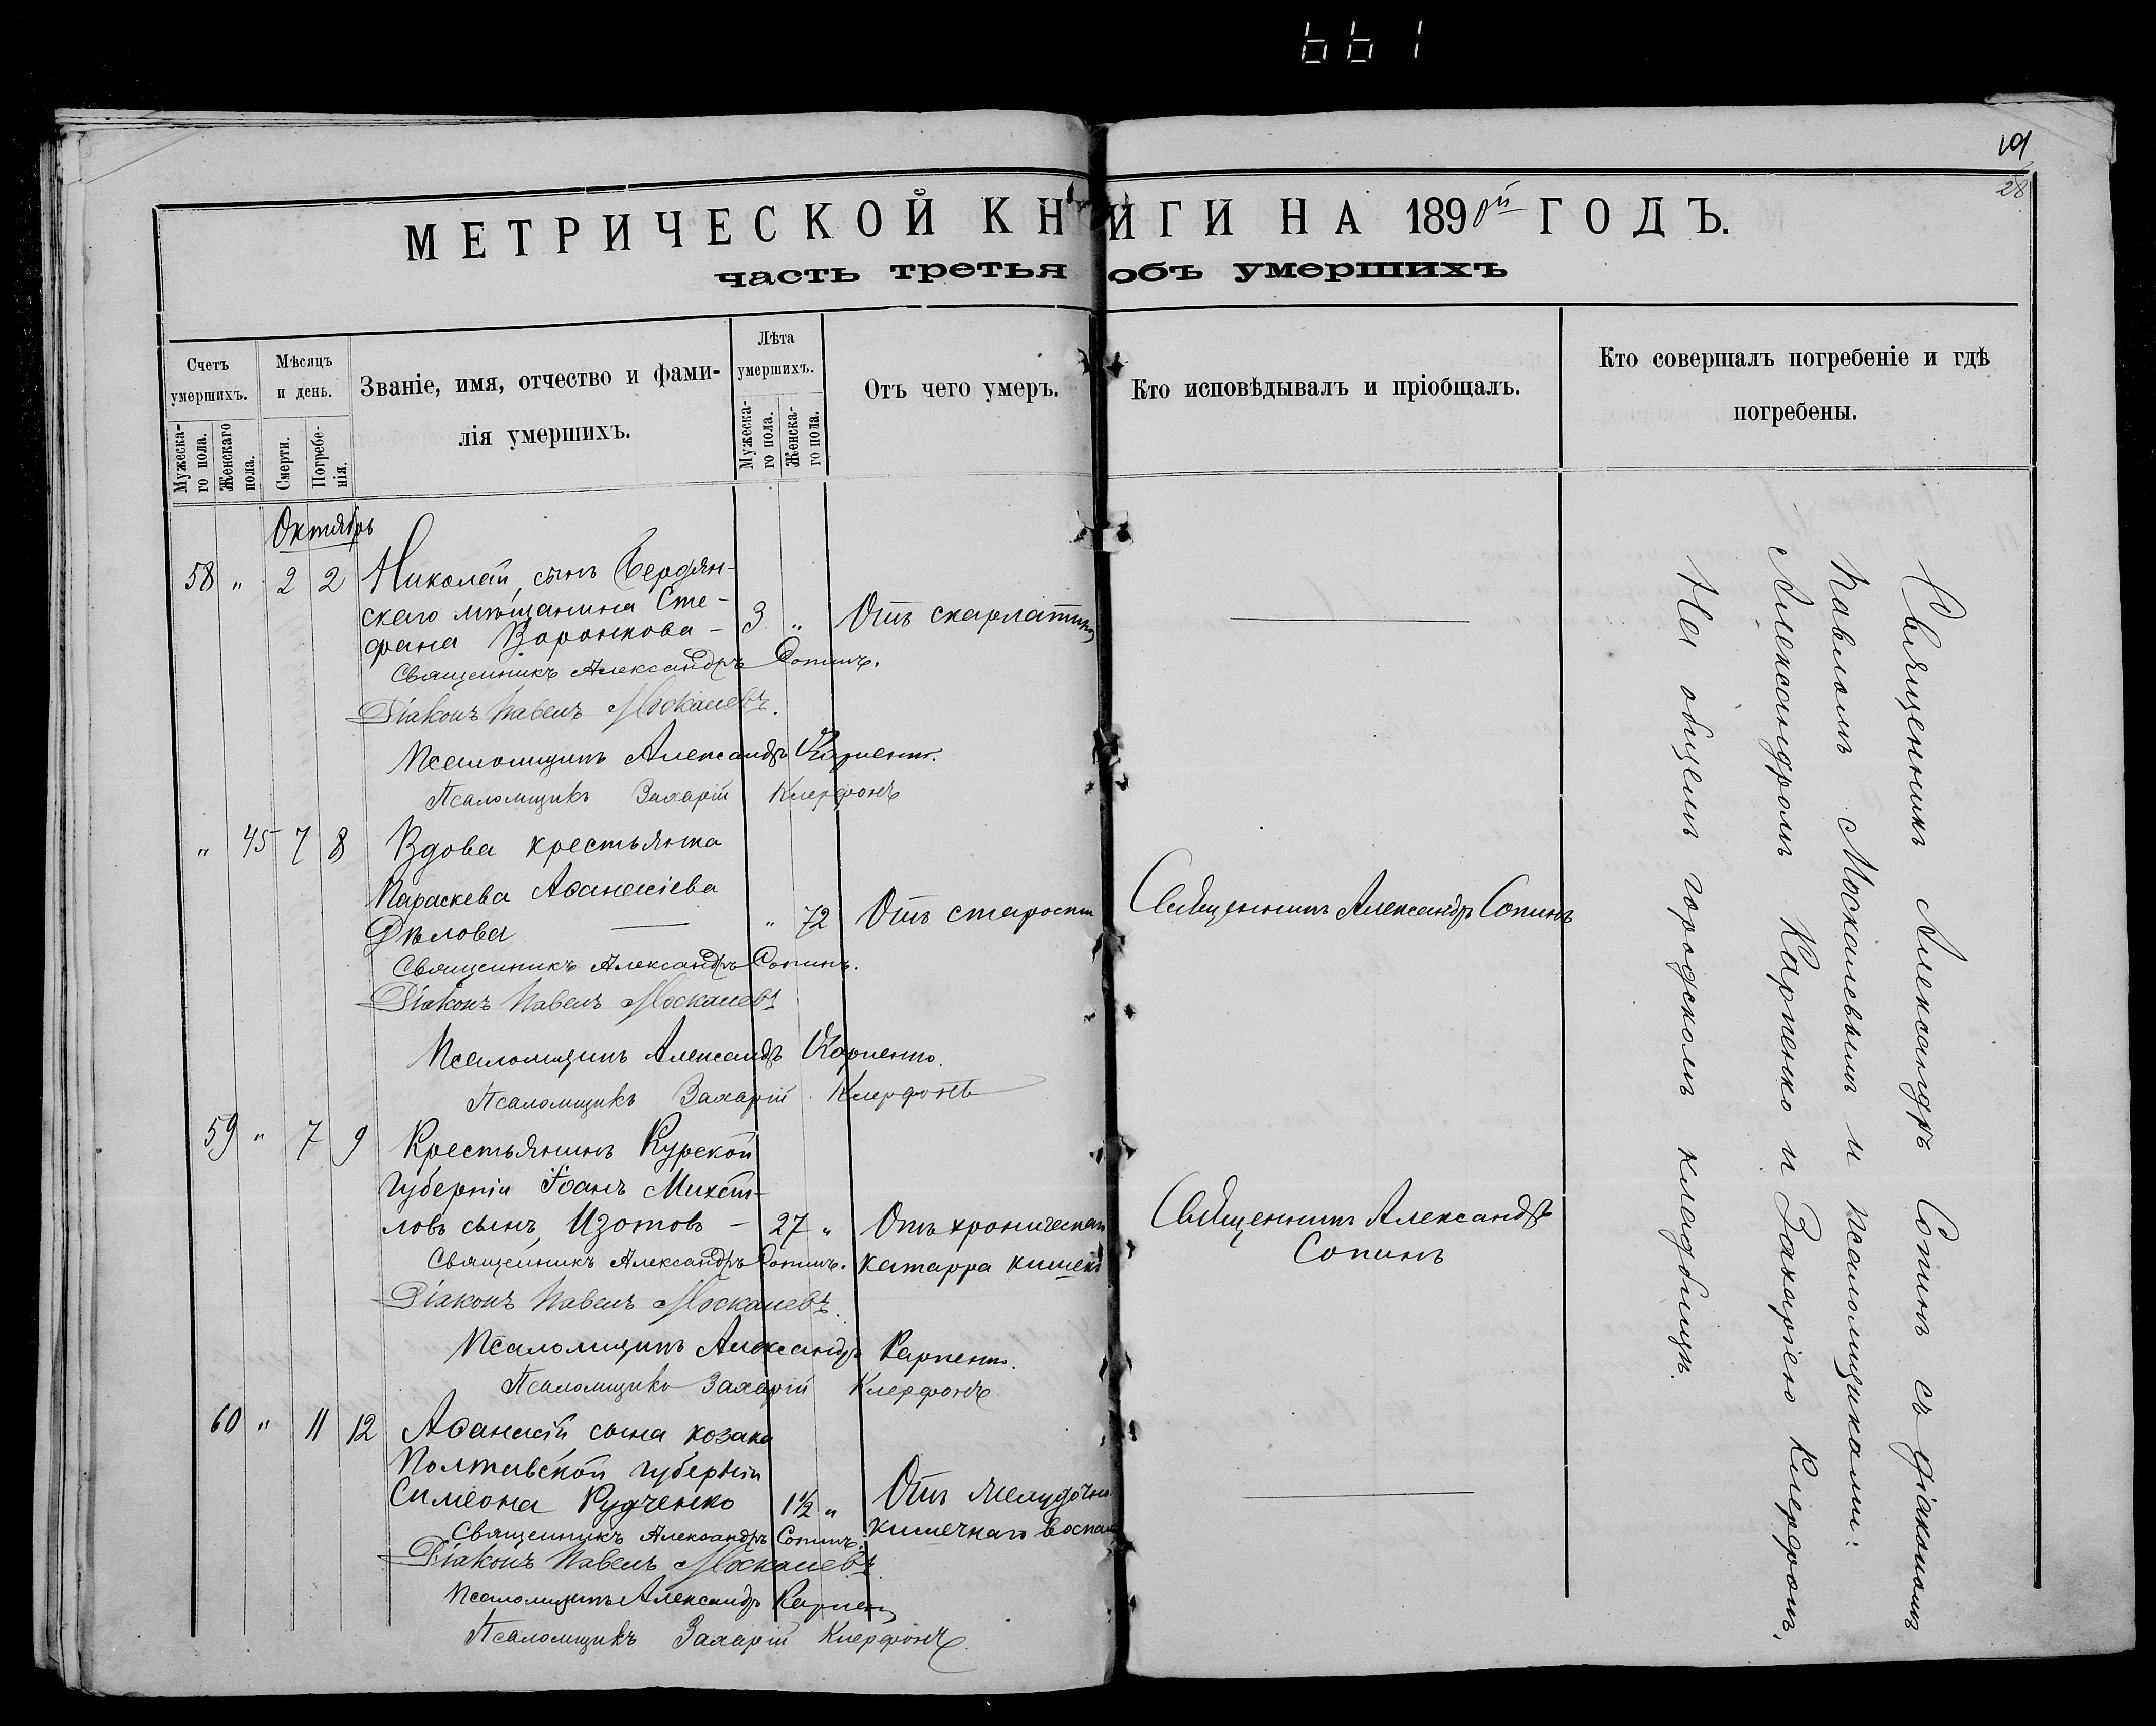 661
101
28
МЕТРИЧЕСКОЙ КНИГИ НА 1890й ГОДЪ.
часть третья объ умершихъ
Счетъ умершихъ.
Мужеска-го пола.
Женскаго пола.
Мѣсяцъ и день.
Смерти.
Погребе-нія.
Званіе, имя, отчество и фами-
лія умершихъ.
Лѣта умершихъ.
Мужеска-го пола.
Женска-го пола.
Отъ чего умеръ.
Кто исповѣдывалъ и пріобщалъ.
Кто совершалъ погребеніе и гдѣ
погребены.
Октябрь
58 " 2 2 Николай, сынъ Бердян-
скаго мѣщанина Сте-
фана Воронкова - 3 " Отъ скарлатины
Священникъ Александръ Сопинъ.
Діаконъ Павелъ Москалевъ.
Псаломщикъ Александръ Карпенко.
Псаломщикъ Захарій Клерфонъ
" 45 7 8 Вдова крестьянка
Параскева Аѳанасіева
Дѣлова " 72 Отъ старости Священникъ Александръ Сопинъ
Священникъ Александръ Сопинъ.
Діаконъ Павелъ Москалевъ
Псаломщикъ Александръ Карпенко.
Псаломщикъ Захарій Клерфонъ
59 " 7 9 Крестьянинъ Курской
губерніи Іоанъ Михаи-
ловъ сынъ Изотовъ - 27 " Отъ хроническаго Священникъ Александръ
Священникъ Александръ Сопинъ. катарра кишекъ Сопинъ
Діаконъ Павелъ Москалевъ.
Псаломщикъ Александръ Карпенко.
Псаломщикъ Захарій Клерфонъ
60 " 11 12 Аѳанасій сына козака
Полтавской губерніи
Симеона Рудченко 1½ " Отъ желудочно
Священникъ Александръ Сопинъ. кишечнаго воспал
Діаконъ Павелъ Москалевъ.
Псаломщикъ Александръ Карпенко
Псаломщикъ Захарій Клерфонъ.
Священникъ Александръ Сопинъ съ діакономъ
Павломъ Москалевымъ и псаломщиками:
Александромъ Карпенко и Захаріею Клерфонъ,
На общемъ городскомъ кладбищѣ.